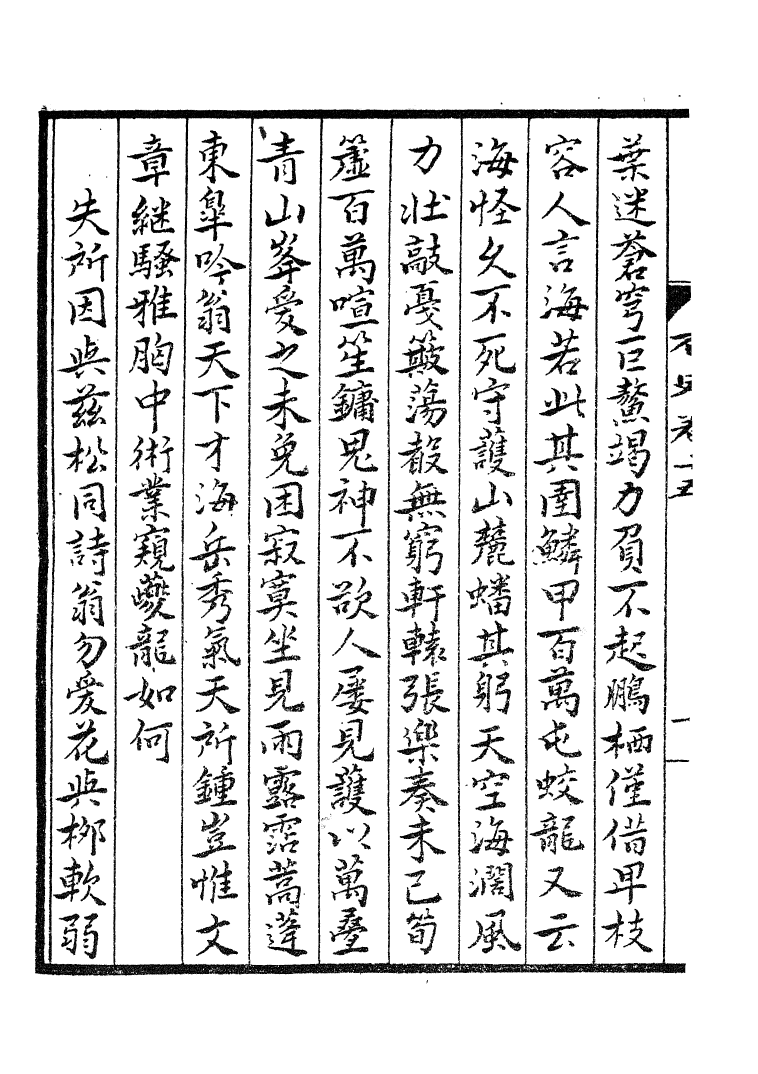 葉迷蒼穹巨鰲竭力負不起鵬栖僅借卑枝
容人言海若此其圉鱗甲百萬屯蛟龍又云
海怪久不死守護山麓蟠其躬天空海濶風
力壯敲戞簸蕩聲無窮軒轅張樂奏未已筍
簴百萬喧笙鏞鬼神不欲人屢見護以萬疊
青山峯愛之未免困寂寞坐見雨露霑蒿蓬
東臯吟翁天下才海岳秀氣天所鍾豈惟文
章継騷雅胸中術業窺夔龍如何
失所因與茲松同詩翁勿愛花與柳軟弱